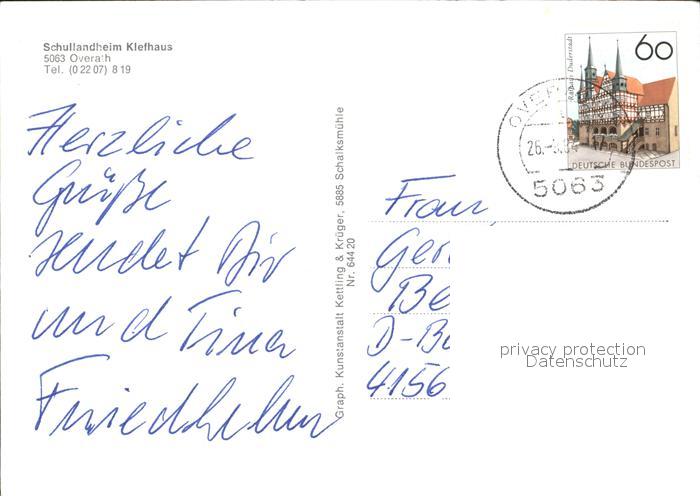 Schullandheim Klefhaus
5063 Overath
Tel. (0 22 07) 8 19
Herzliche
Grüße
sendet Dir
und Tina
Friedhelm
Graph. Kunstanstalt Kettling & Krüger, 5885 Schalksmühle
Nr. 644 20
60
Rathaus Duderstadt
DEUTSCHE BUNDESPOST
OVER
26.
5063
Frau,
Ger
Be
D-Bu
4156
privacy protection
Datenschutz